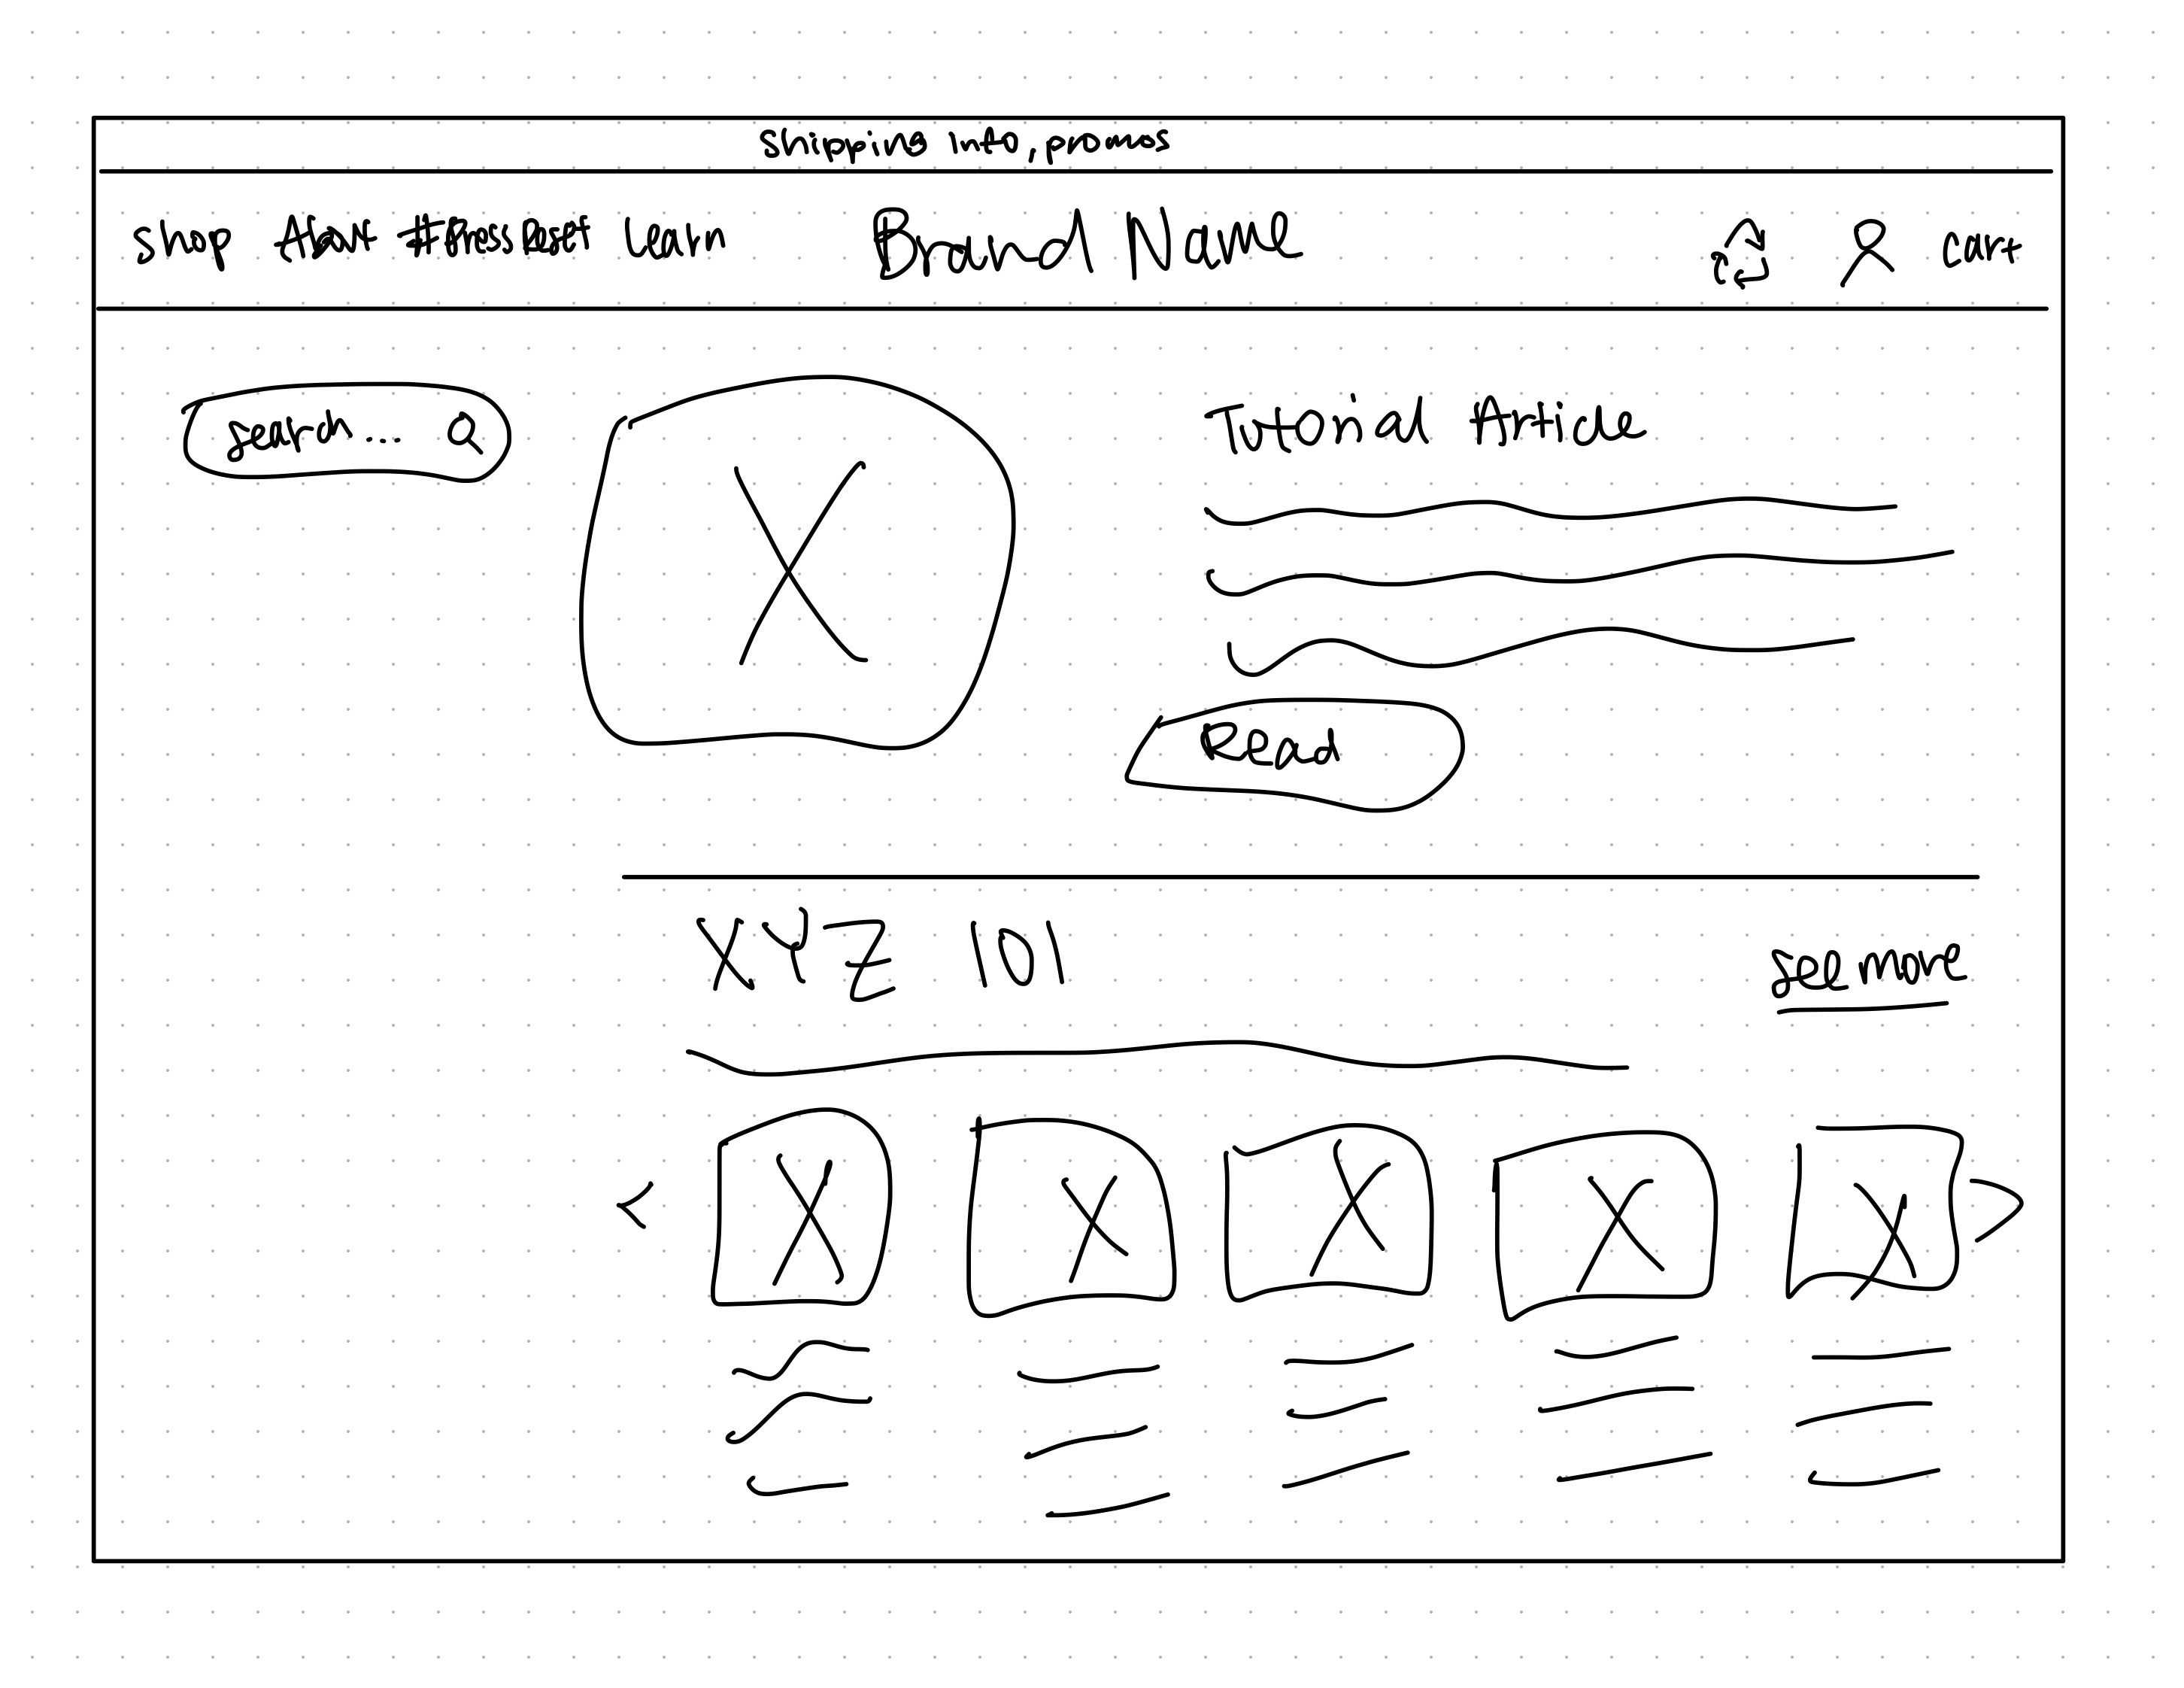 shipping info, promos
shop About #PressReset learn Brand Name cart
search...
Tutorial Article
Read
XYZ 101
see more